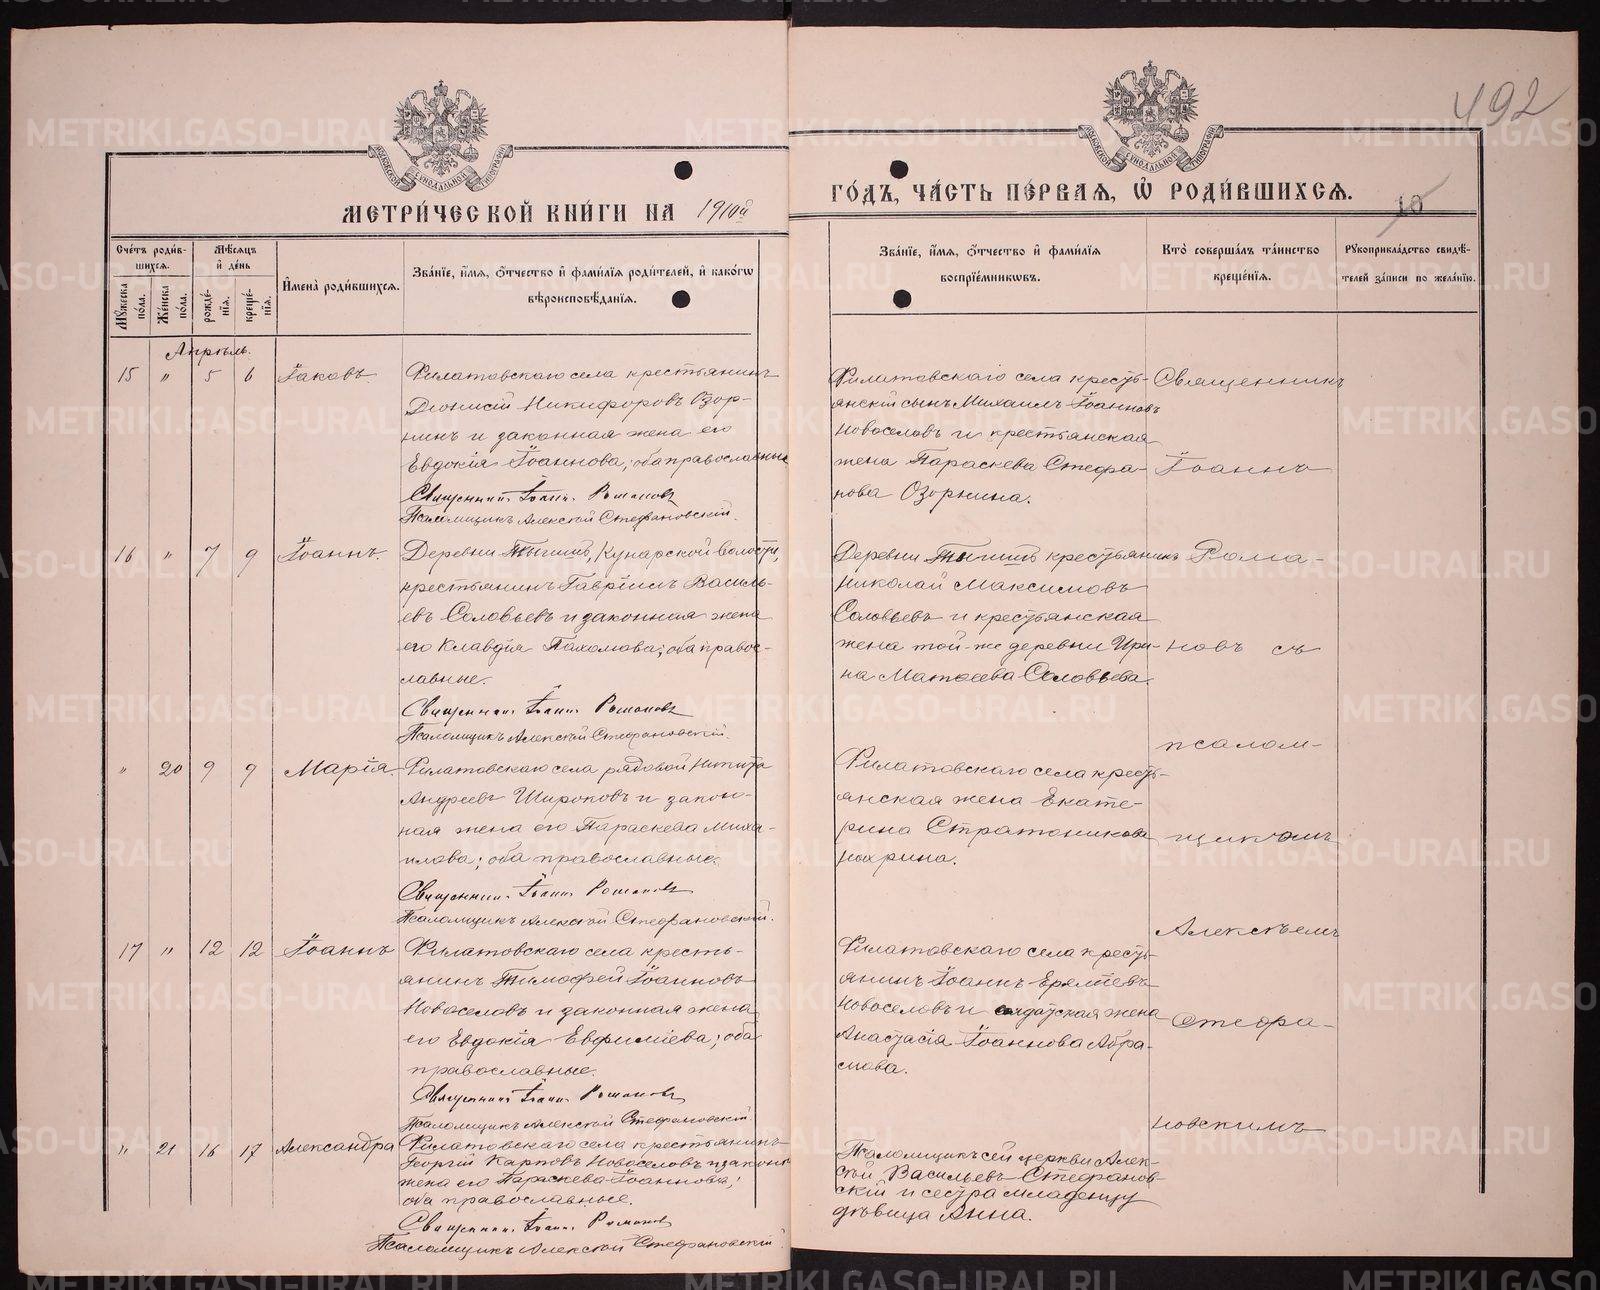 492
МЕТРИ́ЧЕСКОЙ КНИ́ГИ НА 1910й
ГО́ДЪ, ЧА́СТЬ ПЕ́РВАЯ, Ѡ҆ РОДИ́ВШИХСЯ.
10
Сче́тъ роди́в-
шихся.
Мꙋ́жеска по́ла.
Же́нска по́ла.
Мѣ́сяцъ
и҆ де́нь
рожде́-
нїя.
креще́-
нїя.
И҆мена̀ роди́вшихся.
Зва́нїе, и҆́мя, ѻ҆́тчество и҆ фами́лїя роди́телей, и҆ како́гѡ
вѣроисповѣ́данїя.
Зва́нїе, и҆́мя, ѻ҆́тчество и҆ фами́лїя
воспрїе́мникѡвъ.
Кто̀ соверша́лъ та́инство
креще́нїя.
Рꙋкоприкла́дство свидѣ́-
телей за́писи по жела́нїю.
Апрѣль.
15 " 5 6 Іаковъ.
Филатовскаго села крестьянинъ
Діонисій Никифоровъ Озор-
нинъ и законная жена его
Евдокія Іоаннова; оба православные
Священник Іоанн Романовъ
Псаломщикъ Алексѣй Стефановскій.
Филатовскаго села кресть-
янскій сынъ Михаилъ Іоанновъ
Новоселовъ и крестьянская
жена Параскева Стефа-
нова Озорнина.
16 " 7 9 Іоаннъ.
Деревни Тыгишъ, Кунарской волости,
крестьянинъ Гавріилъ Василь-
евъ Соловьевъ и законная жена
его Клавдія Пахомова; оба правос-
лавные.
Священник Іоанн Романовъ
Псаломщикъ Алексѣй Стефановскій.
Деревни Тыгишъ крестьянинъ
Николай Максимовъ
Соловьевъ и крестьянская
жена той-же деревни Ири-
на Матѳеева Соловьева.
" 20 9 9 Марія.
Филатовскаго села рядовой Никита
Андреевъ Широковъ и закон-
ная жена его Параскева Миха-
илова; оба православные.
Священник Іоанн Романовъ
Псаломщикъ Алексѣй Стефановскій.
Филатовскаго села кресть-
янская жена Екате-
рина Стратоникова
17 " 12 12 Іоаннъ
Филатовскаго села кресть-
янинъ Тимофей Іоанновъ
Новоселовъ и законная жена
его Евдокія Евфиміева; оба
православные.
Священник Іоанн Романовъ
Псаломщикъ Алексѣй Стефановскій
Филатовскаго села кресть-
янинъ Іоаннъ
Новоселовъ и солдатская жена
Анастасія Іоаннова Абра-
мова.
" 21 16 17 Александра
Филатовскаго села крестьянинъ
Георгій Карповъ Новоселовъ и законн
жена его Параскева Іоаннова;
оба православные.
Священник Іоанн Романовъ
Псаломщикъ Алексѣй Стефановскій
Псаломщикъ сей церкви Алек-
сѣй Васильевъ Стефанов-
скій и сестра младенцу
дѣвица Анна.
Священникъ
Іоаннъ
Рома-
новъ съ
псалом-
щикомъ
Алексѣемъ
Стефа-
новскимъ
METRIKI.GASO-URAL.RU